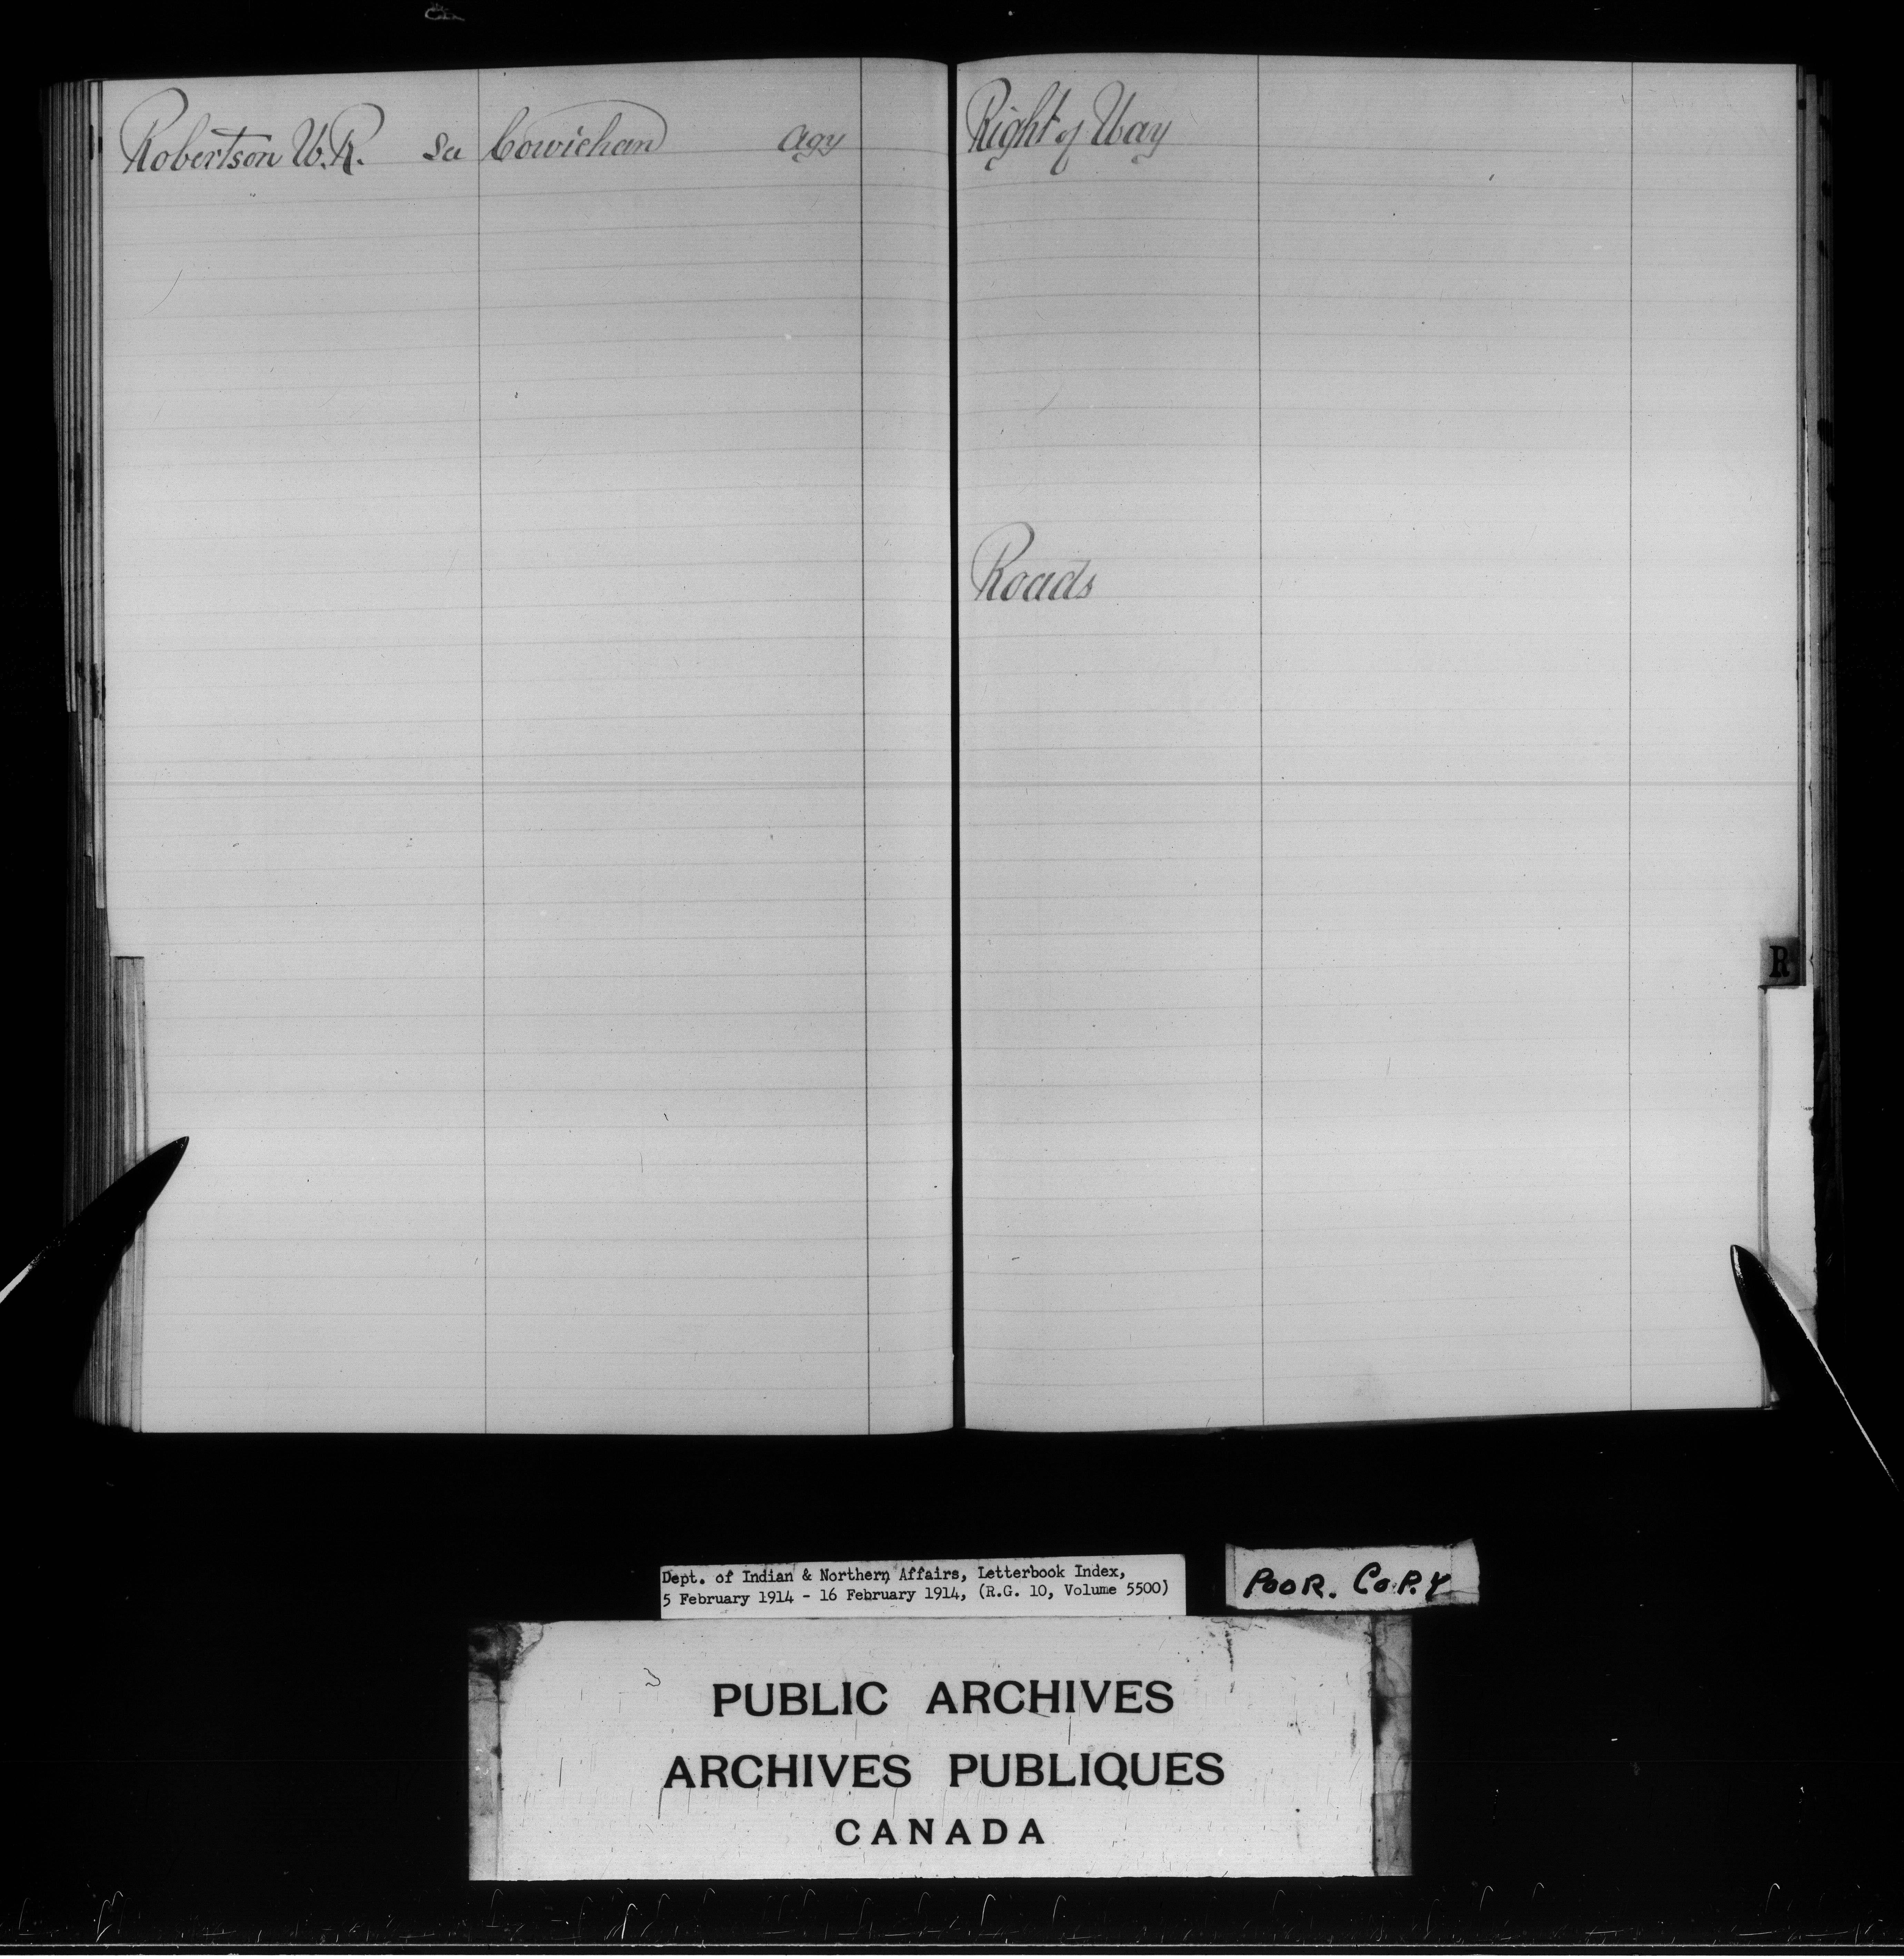 Robertson W.R. Cowichan Agy
Right of Way
Roads
R
Dept. of Indian & Northern Affairs, Letterbook Index,
5 February 1914 - 16 February 1914, (R.G. 10, Volume 5500)
POOR. COPY
PUBLIC ARCHIVES
ARCHIVES PUBLIQUES
CANADA